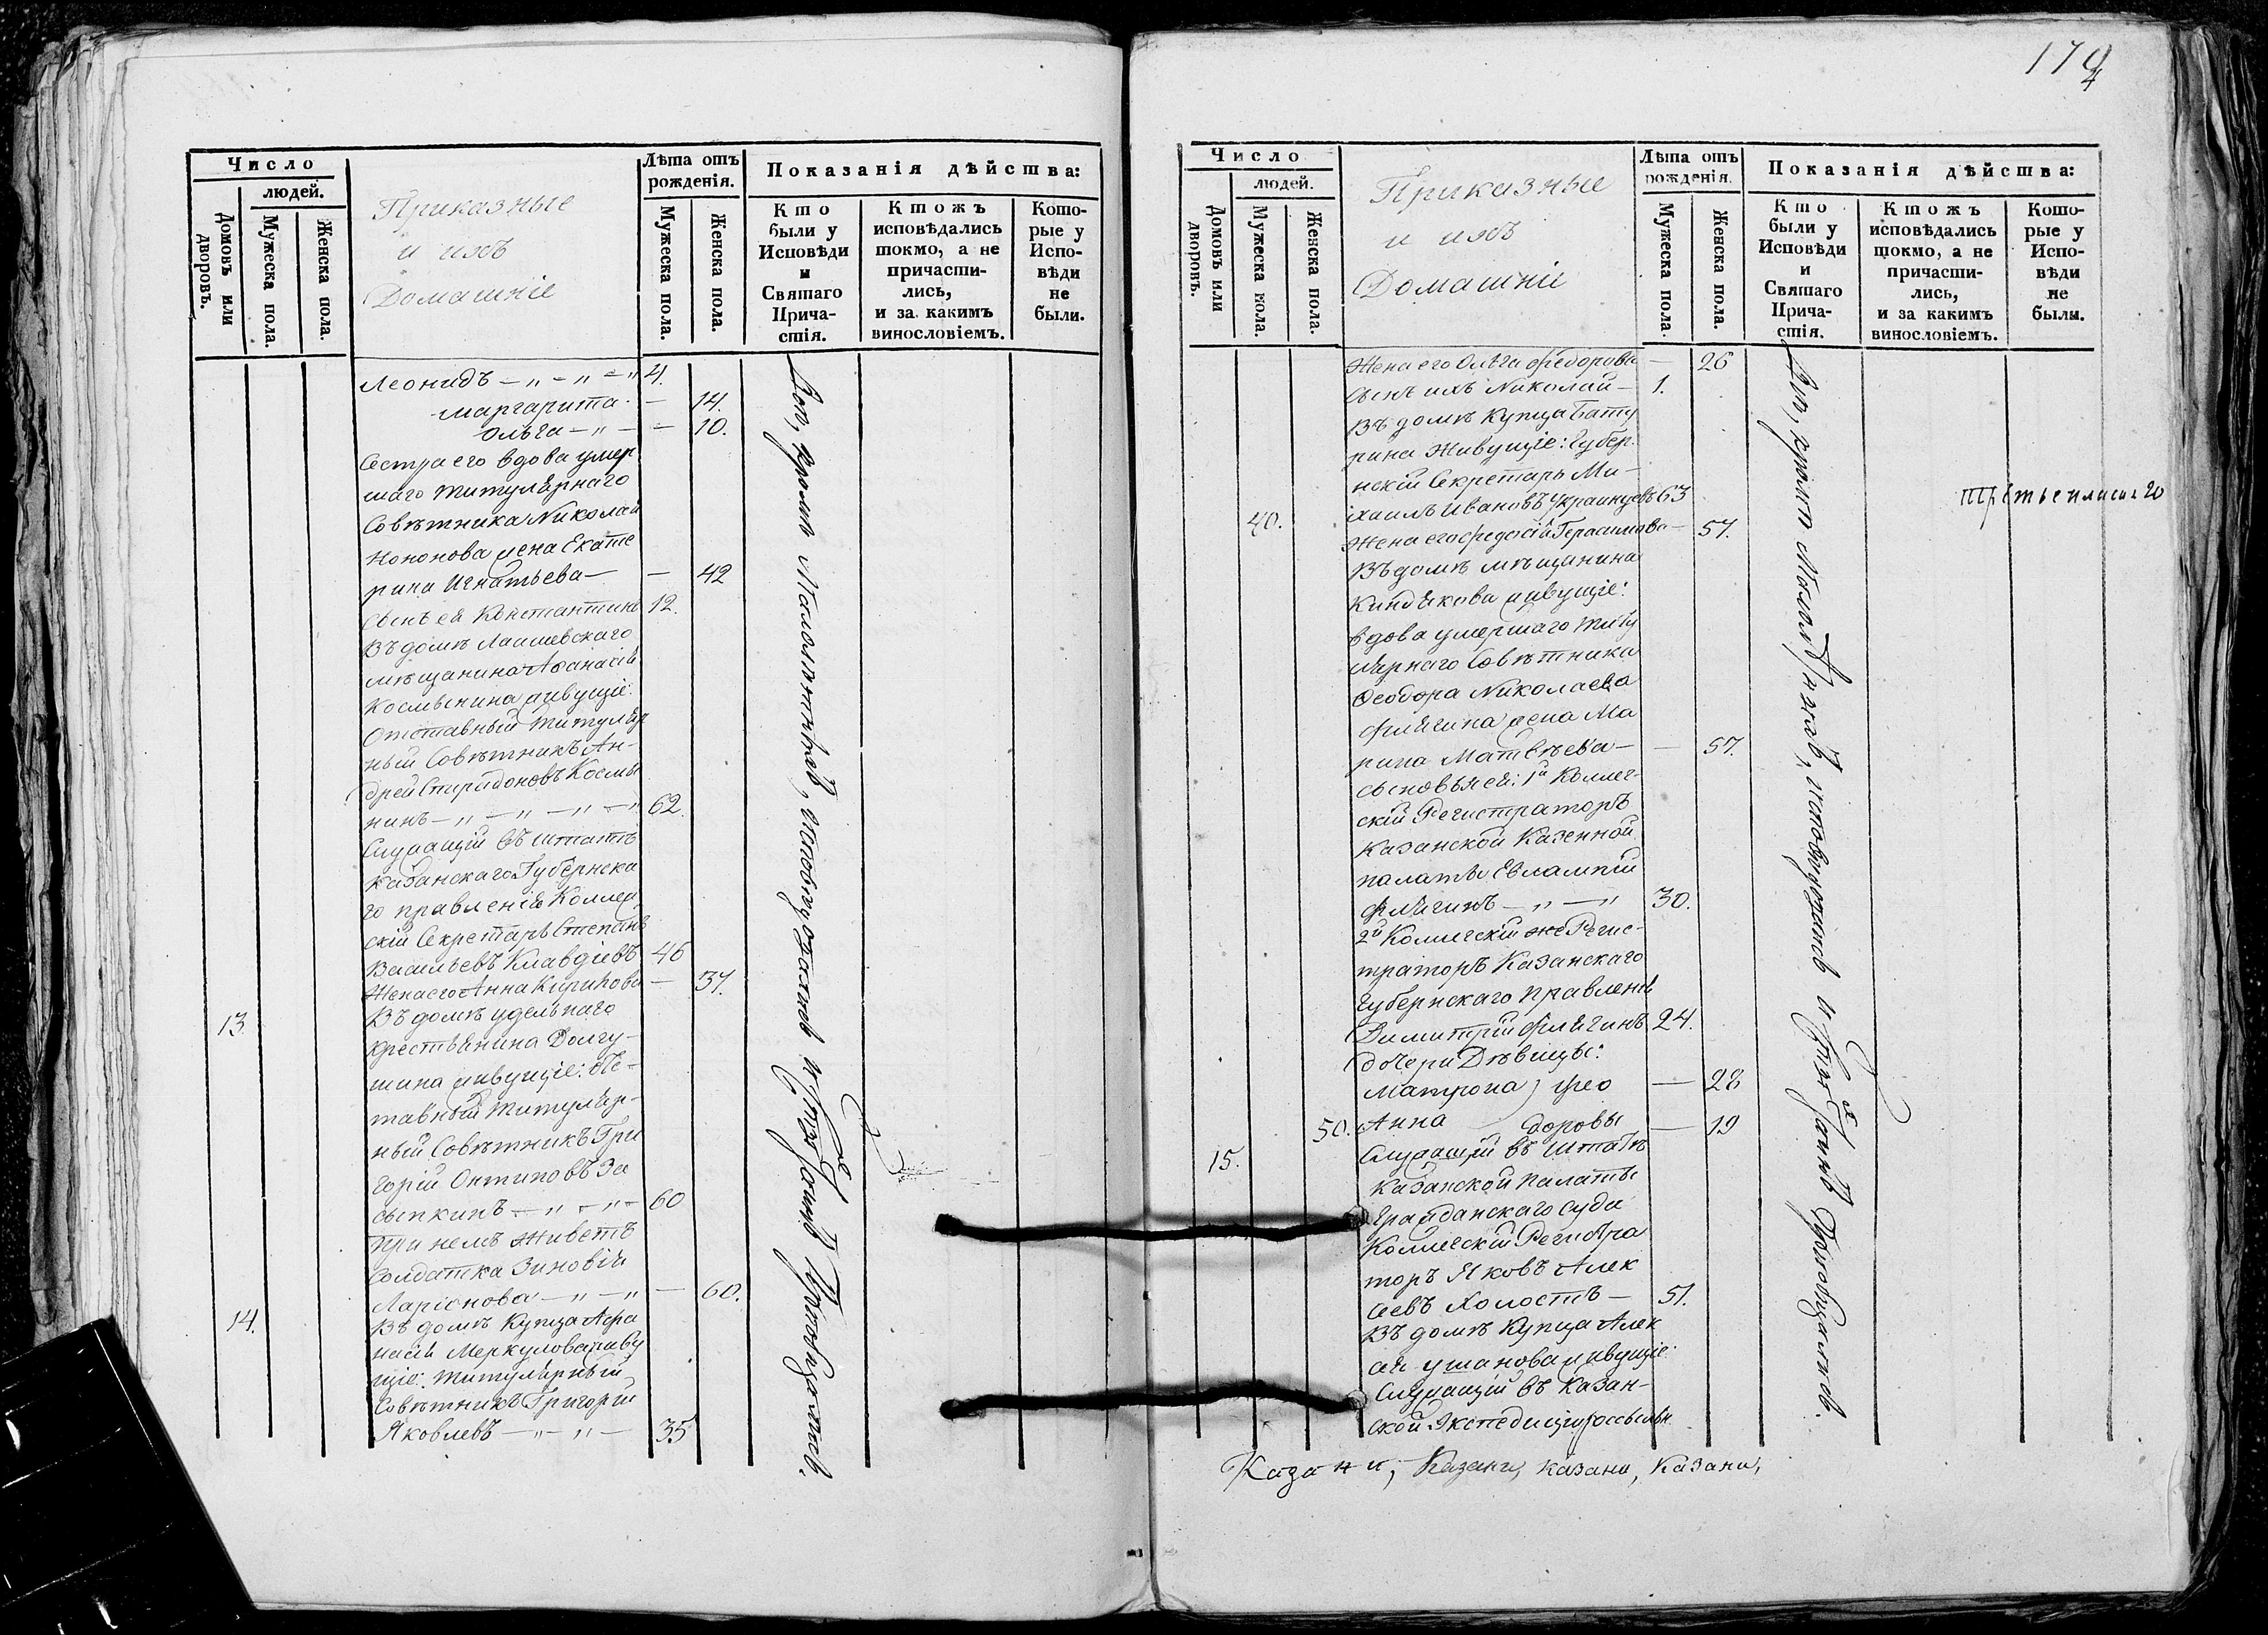 Число
людей.
Домовъ или дворовъ.
Мужеска пола.
Женска пола.
Приказные
и ихъ
Домашніе
Лѣта отъ
рожденія.
Мужеска пола.
Женска пола.
Показанія дѣйства:
Кто
были у
Исповѣди
и
Святаго
Прича-
стія.
Ктожъ
исповѣдались
токмо, а не
причасти-
лись,
и за какимъ
винословіемъ.
Кото-
рые у
Испо-
вѣди
не
были.
Леонидъ — „ — „ — „ 4.
Маргарита — 14.
Ольга — „ — — 10.
Сестра его вдова умер
шаго Титулярнаго
Совѣтника Николая
Кононова жена Екате
рина Игнатьева — — 42
Сынъ ея Константинъ 12.
Въ домѣ Лаишевскаго
мѣщанина Аѳанасія
Космынина живущіе:
Отставный Титуляр
ный Совѣтникъ Ан-
дрей Спиридоновъ Космы
нинъ — „ — „ — „ — „ 62.
Служащій въ штатѣ
Казанскаго Губернска
го правленія Коллеж
скій Секретарь Степанъ
Васильевъ Клавдіевъ 46
Жена его Анна Кирилова — 37.
13. Въ домѣ удельнаго
крестьянина Долгу-
шина живущіе: От-
тавный Титуляр-
ный Совѣтникъ Гри
горій Онтиповъ За
сыпкинъ — „ — „ — 60
При немъ живетъ
Солдатка Зиновія
Ларіонова — „ — „ — 60.
14. Въ домѣ Купца Аѳа
насія Меркулова живу
щіе: Титулярный
Совѣтникъ Григорій
Яковлевъ — „ — „ — 35
Всѣ, кромѣ Малолѣтнихъ, исповѣдовались и Святыхъ Таинъ Пріобщались.
174
Число
людей.
Домовъ или дворовъ.
Мужеска пола.
Женска пола.
Приказные
и ихъ
Домашніе
Лѣта отъ
рожденія.
Мужеска пола.
Женска пола.
Показанія дѣйства:
Кто
были у
Исповѣди
и
Святаго
Прича-
стія.
Ктожъ
исповѣдались
токмо, а не
причасти-
лись,
и за какимъ
винословіемъ.
Кото-
рые у
Испо-
вѣди
не
были.
Жена его Ольга Федорова — 26
Сынъ ихъ Николай — 1.
Въ домѣ Купца Бату
рина Живущіе: Губер
нскій Секретарь Ми-
40. хаилъ Ивановъ Украинцевъ 63
Жена его Федосія Герасимова — 57.
Въ домѣ мѣщанина
Киндякова живущіе:
вдова умершаго Титу
лярнаго Совѣтника
Феодора Николаева
Филягина жена Ма
рина Матвѣева — — 57.
сыновья ея: 1й Коллеж-
скій Регистраторъ
Казанской Казенной
палаты Евлампій
Филягинъ — „ — „ 30.
2й Коллежскій же Регис-
траторъ Казанскаго
Губернскаго правленія
Димитрій Филягинъ 24.
дочери Дѣвицы:
Матрона } Фео — 28
50. Анна доровы — 19
15. Служащій въ Штатѣ
Казанской Палаты
Гражданскаго Суда
Коллежскій Регистра
торъ Яковъ Алек
сеевъ Холостъ — 51.
Въ домѣ Купца Алек
сея Ушанова живущіе:
Служащій въ Казан-
ской Экспедиціи
Всѣ, кромѣ Малолѣтнихъ, исповѣдовались и Святыхъ Таинъ Пріобщались.
Казани, Казани, Казани, Казани,